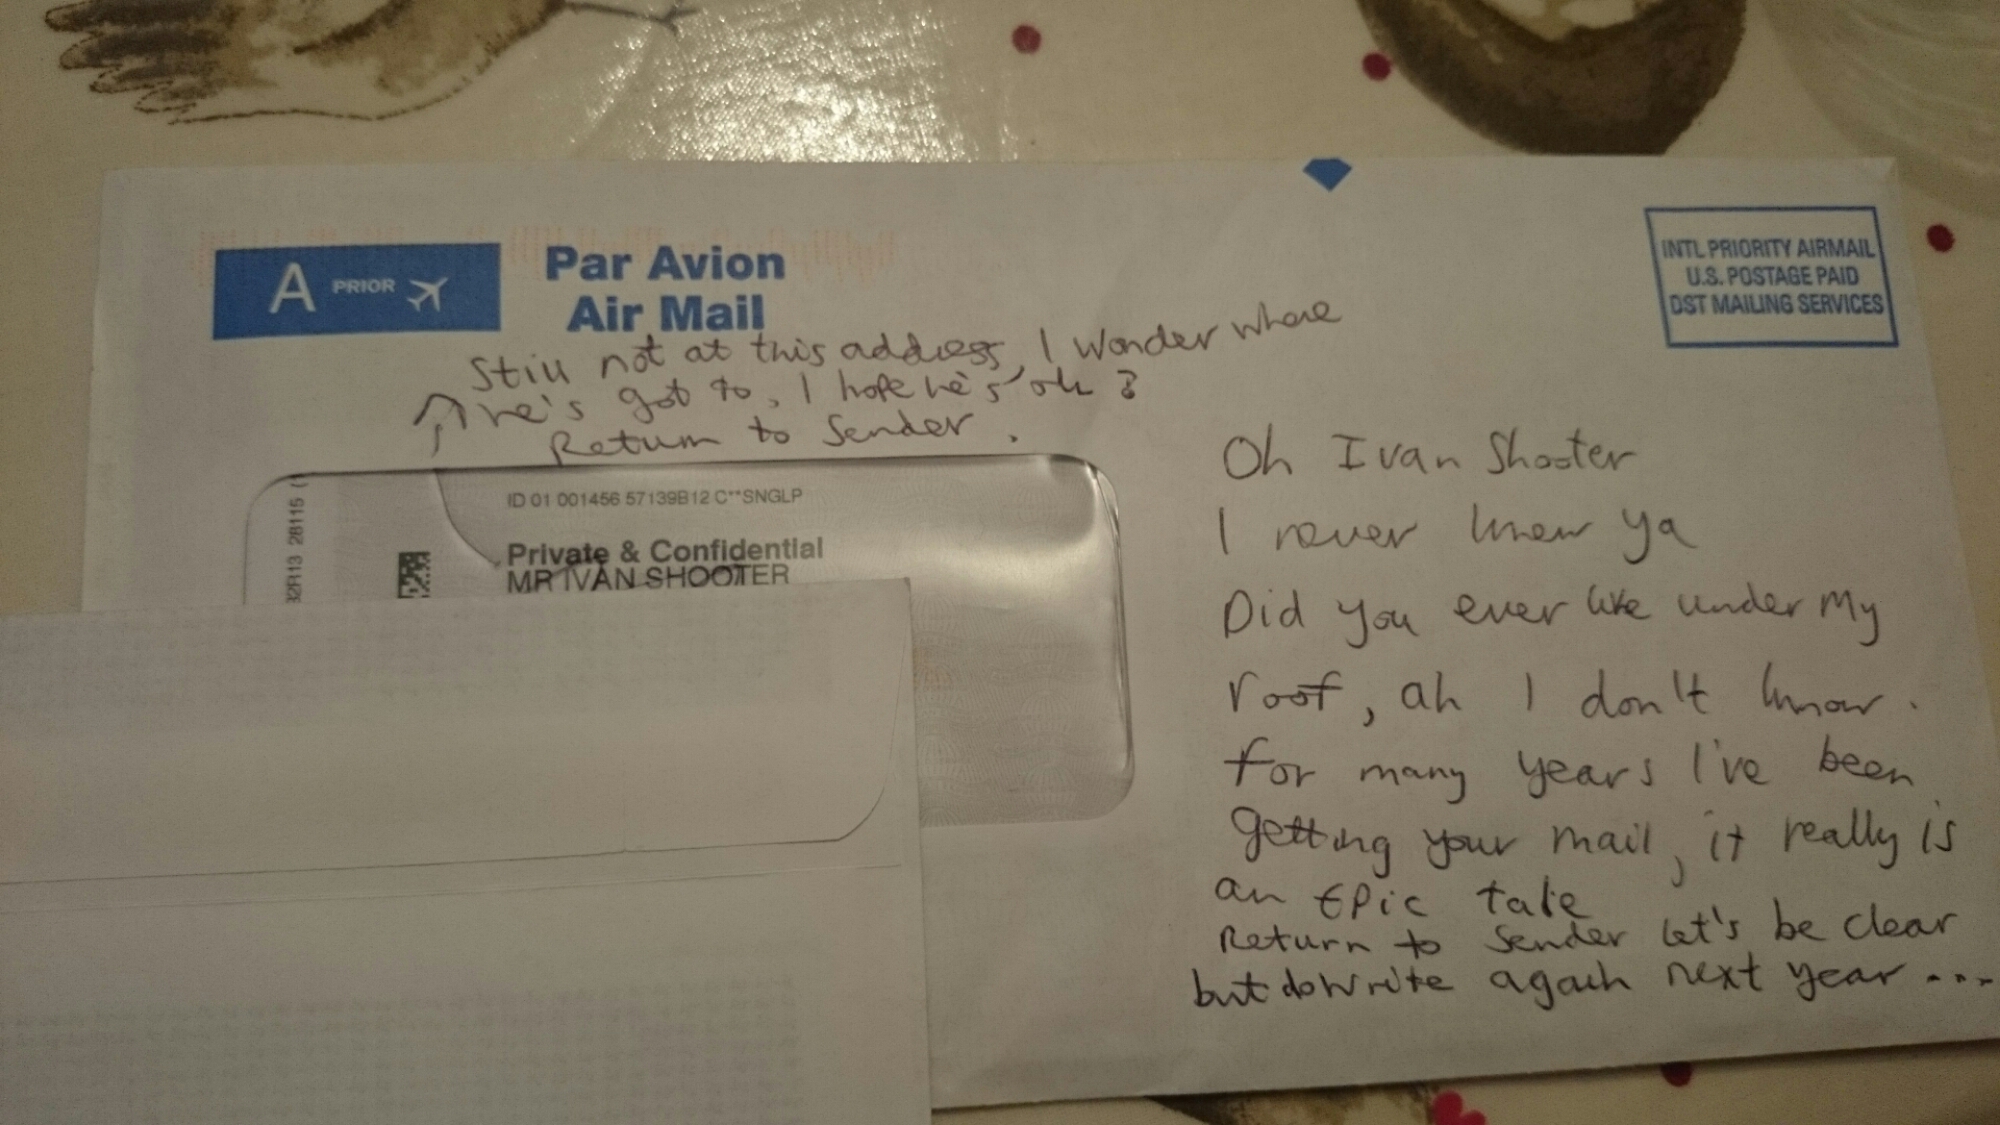 A PRIOR
Par Avion
Air Mail
INTL PRIORITY AIRMAIL
U.S. POSTAGE PAID
DST MAILING SERVICES
Still not at this address, I wonder where
he's got to, I hope he's ok?
Return to Sender.
ID 01 001456 57139B12 C**SNGLP
Private & Confidential
MR IVAN SHOOTER
28115
Oh Ivan Shooter
I never knew ya
Did you ever live under my
roof, ah I don't know.
For many years I've been
getting your mail, it really is
an Epic tale
Return to Sender let's be clear
but do write again next year ....